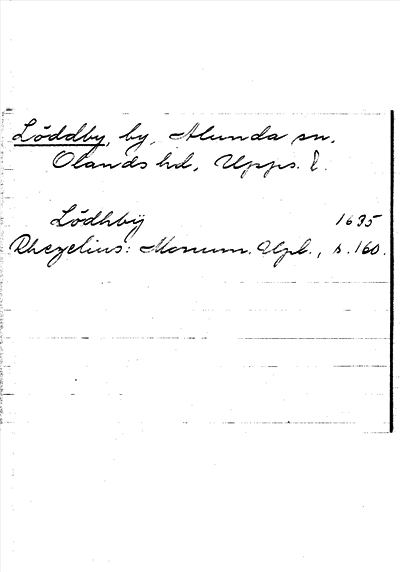 Löddby, by, Alunda sn,
Olands hd, Upps. l.
Lödhbÿ 1635
Rhezelius: Monum. Upl., s. 160.